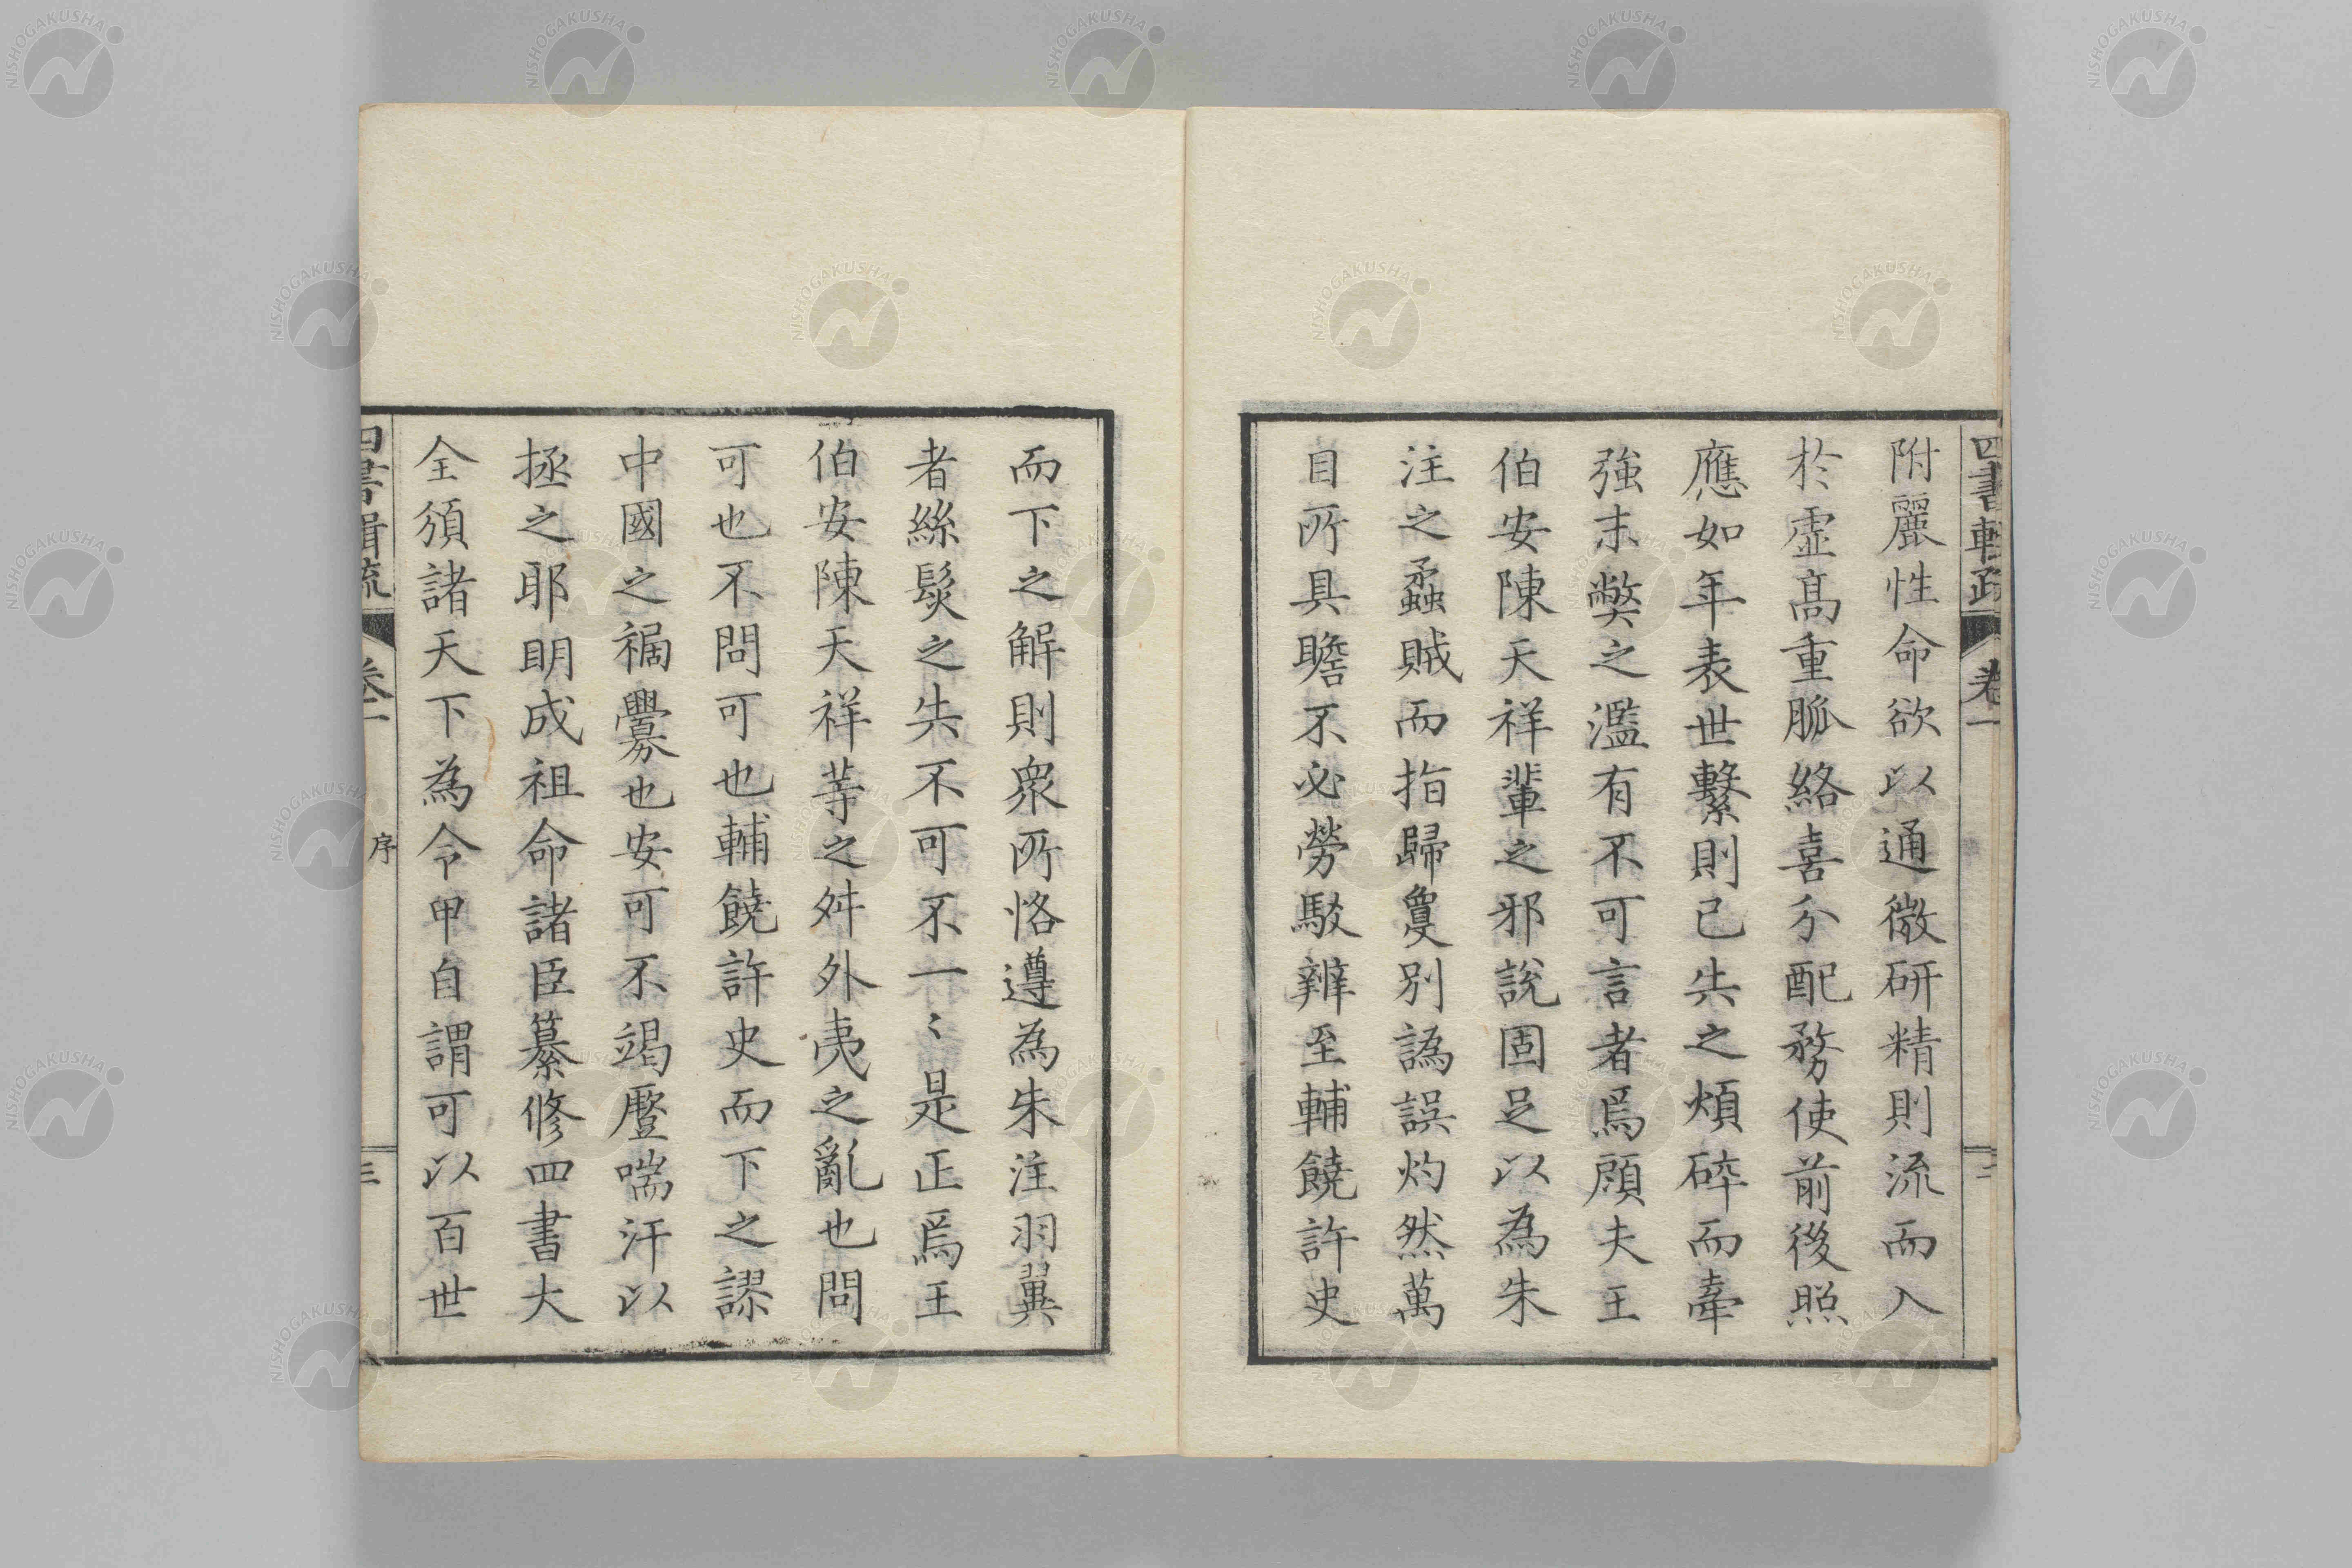 四書輯疏 卷一 二
附麗性命欲以通微研精則流而入
於虛高重脈絡喜分配務使前後照
應如年表世繫則已失之煩碎而牽
強末弊之濫有不可言者焉頋夫王
伯安陳天祥輩之邪說固足以為朱
注之蟊賊而指歸敻別譌誤灼然萬
目所具瞻不必勞駁辨至輔饒許史
而下之解則衆所恪遵為朱注羽翼
者絲髮之失不可不一〻是正焉王
伯安陳天祥等之舛外夷之亂也問
可也不問可也輔饒許史而下之謬
中國之禍釁也安可不竭蹷喘汗以
拯之耶明成祖命諸臣纂修四書大
全頒諸天下為令甲自謂可以百世
四書輯疏 卷一 序 三
NISHOGAKUSHA